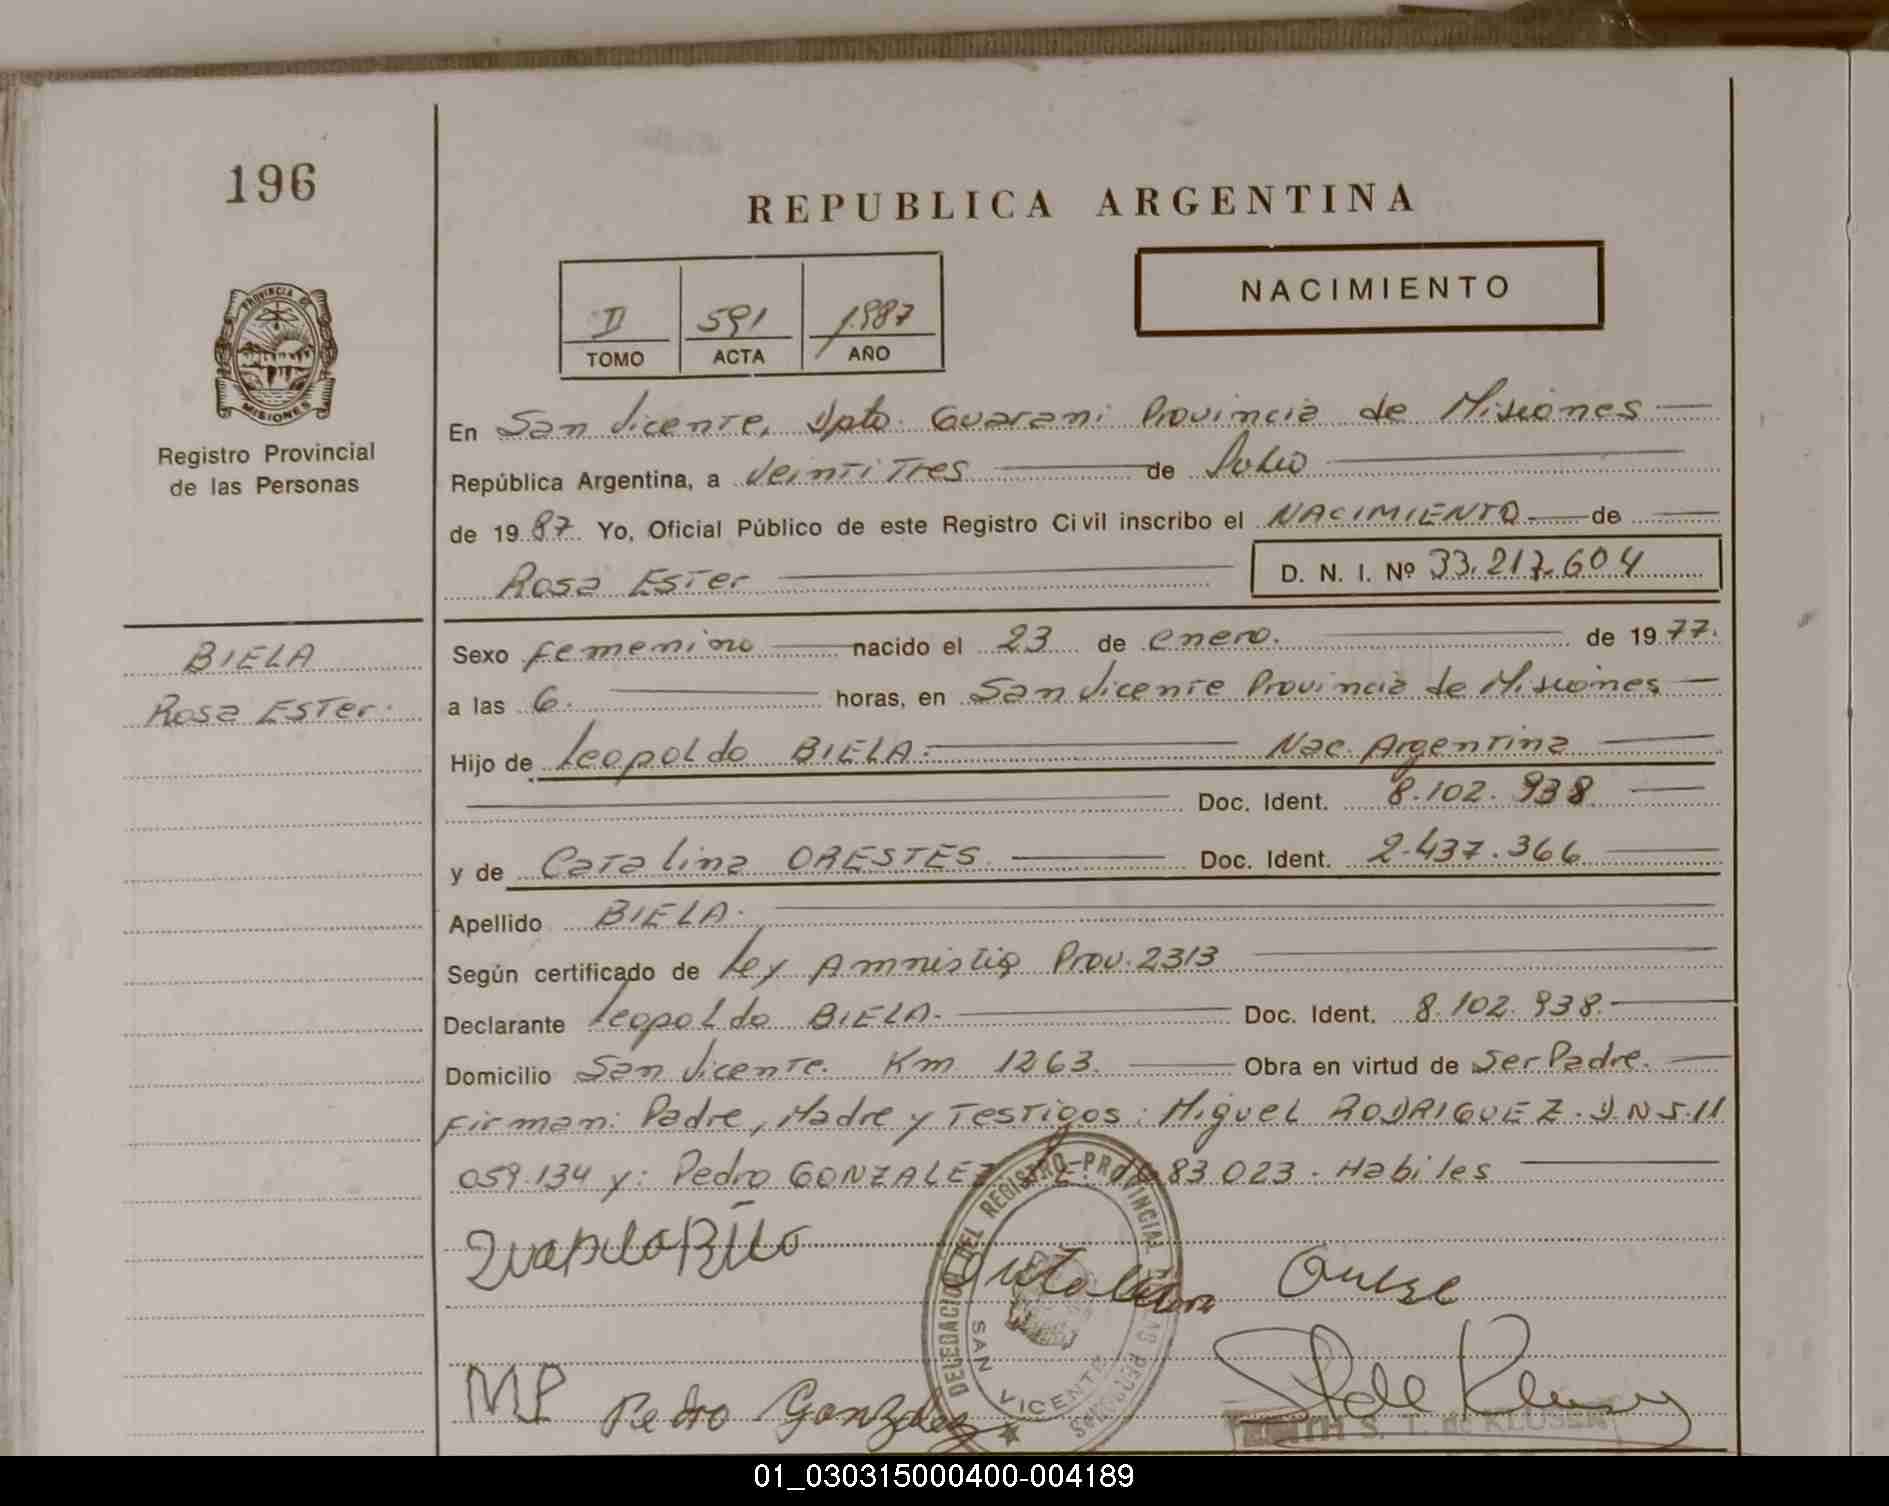 196
REPUBLICA ARGENTINA
NACIMIENTO
II 591 1987
TOMO ACTA AÑO
PROVINCIA DE
MISIONES
Registro Provincial
de las Personas
En San Vicente, Dpto. Guarani Provincia de Misiones
República Argentina, a Veintitres de Julio
de 1987 Yo, Oficial Público de este Registro Civil inscribo el NACIMIENTO de
Rosa Ester D. N. I. Nº 33.217.604
BIELA
Rosa Ester.
Sexo femenino nacido el 23 de enero. de 1977.
a las 6. horas, en San Vicente Provincia de Misiones
Hijo de Leopoldo BIELA. Nac. Argentina
Doc. Ident. 8.102.938
y de Catalina ORESTES Doc. Ident. 2.437.366
Apellido BIELA.
Según certificado de Ley Amnistia Prov. 2313
Declarante Leopoldo BIELA. Doc. Ident. 8.102.938.
Domicilio San Vicente. Km 1263. Obra en virtud de Ser Padre.
Firman: Padre, Madre y Testigos: Miguel RODRIGUEZ. D.N.I. 11
059.134 y: Pedro GONZALEZ 83.023. Habiles
DELEGACION DEL REGISTRO PROVINCIAL DE LAS PERSONAS
SAN VICENTE
MP Pedro Gonzalez
S. T. de KLUSER
01_030315000400-004189